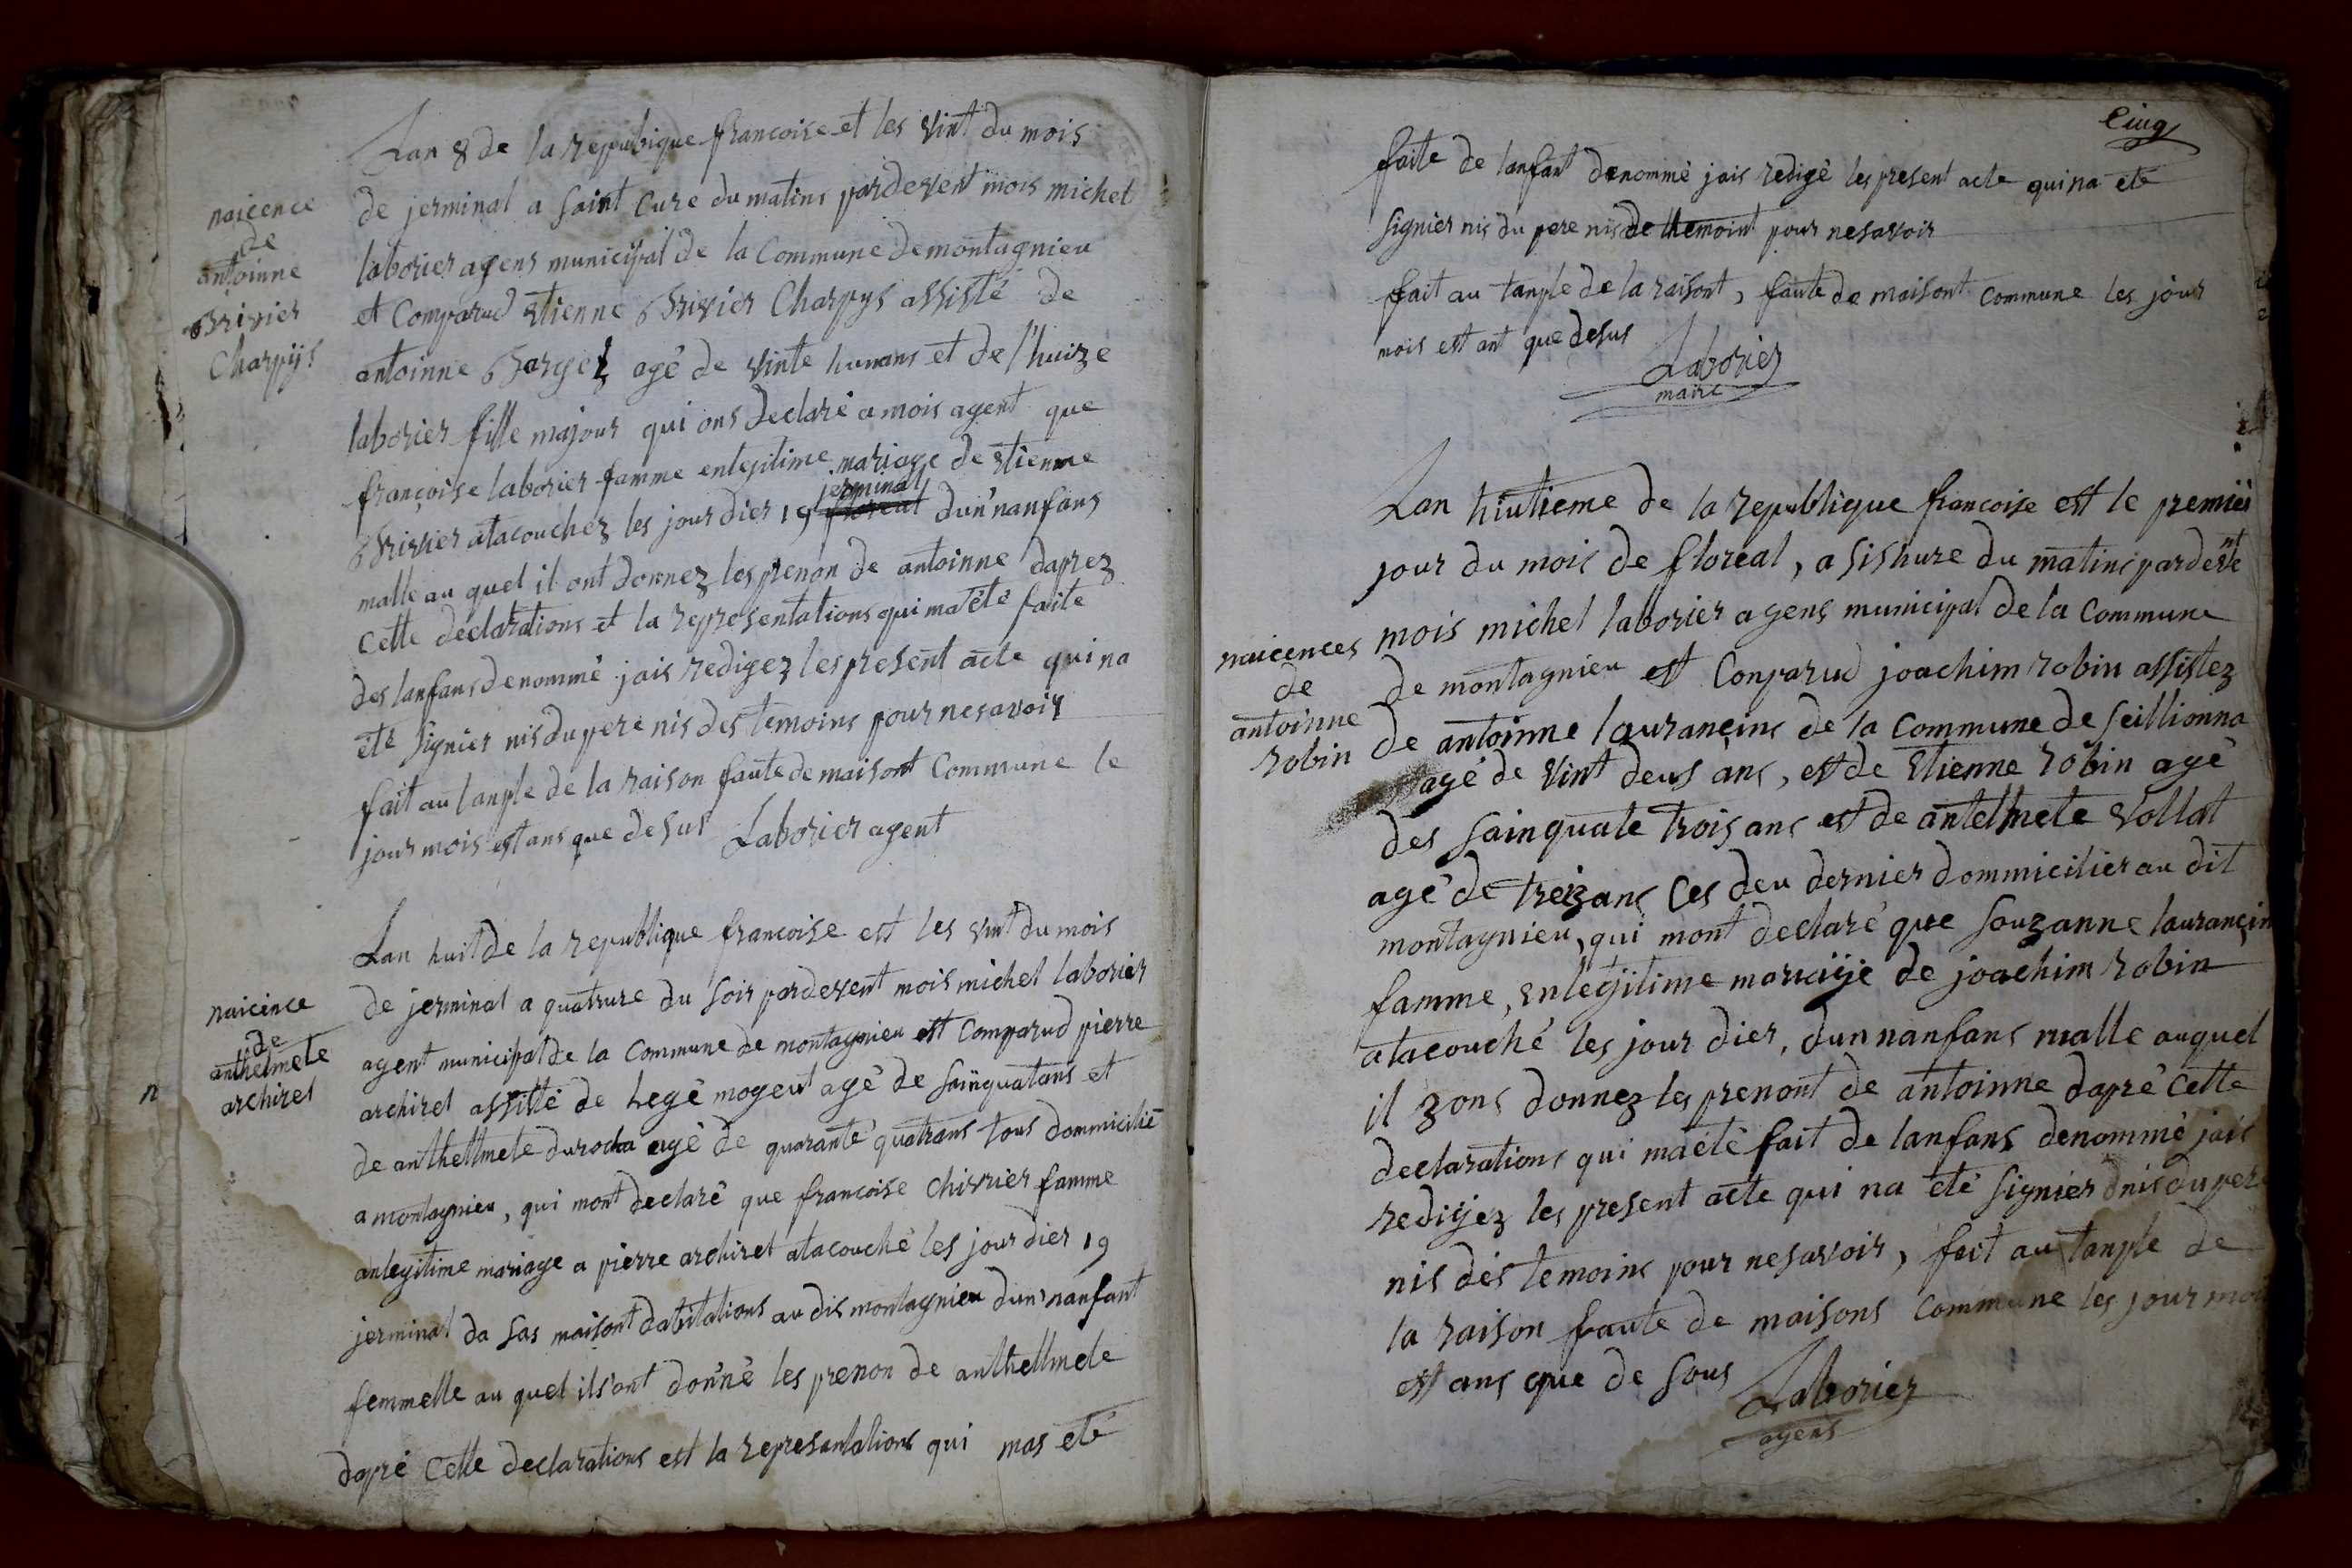 naicence
de
antoinne
Brivier
Charpys
Lan 8 de la republique francoise et les vint du mois
de jerminal a saint cure du matins pardevent mois michel
laborier agens municipal de la Commune de montagnieu
et Comparud Etienne Brivier Charpys assisté de
antoinne Barget agé de vinte hunans et de l'huize
laborier fille majour qui ons declaré a mois agent que
françoise laborier famme enlegitime mariage de Etienne
Brivier atacouchez les jour dier 19 floreal jerminal dun'nanfans
malle au quel il ont donnez les prenon de antoinne daprez
Cette déclarations et la representations qui ma été faite
des lanfans denommé jais redigez les present acte qui na
été signier nis du pere nis des temoins pour nesavoir
fait au tanple de la raison faute de maisont Commune le
jour mois est ans que desus Laborier agent
naicince
de
anthelmete
archiret
n
Lan huit de la republique francoise est les vint du mois
de jerminal a quatrure du soir pardevent mois michel laborier
agent municipal de la Commune de montagnieu est Comparud pierre
archiret assisté de Legé mogeut agé de sainquatans et
de anthettmete durocha agé de quarante quatrans tous dommicilié
a montagnieu, qui mont declaré que francoise chivrier famme
anlegitime mariage a pierre archiret atacouché les jour dier 19
jerminal da sas maisont dabitations au dis montagnieu dun'nanfant
femmelle au quel ils'ont donné les prenon de anthellmete
dapré Cette declarations est la represantations qui mas eté
Cinq
faite de lanfant denommé jais redigé les present acte qui na eté
signier nis du pere nis de themoint pour nesavoir
fait au tanple de la raisont, faute de maisont Commune les jour
mois est ant que desus
Laborier
maire
naicences
de
antoinne
robin
Lan hiutieme de la republique francoise est le premier
jour du mois de floreal, a sishure du matins pardevente
mois michel laborier agens municipal de la Commune
de montagnieu est Conparud joachim robin assistez
de antoinne laurançins de la Commune de seillionna
agé de vint deus ans, est de Etienne robin agé
des sainquate trois ans est de antelmete vollat
agé de treizans Ces deu dernier dommicilier au dit
montagnieu, qui mont declaré que souzanne laurançin
famme, enlegitime mariaije de joachim robin
atacouché les jour dier, dun nanfans malle auquel
il zons donnez les prenont de antoinne dapré Cette
declarations qui maeté fait de lanfans denommé jais
redigez les present acte qui na eté signier nis du pere
nis des temoins pour nesavoir, fait au tanple de
la raison faute de maisons Commune les jour moi
est ans que de sous
Laborier
agens